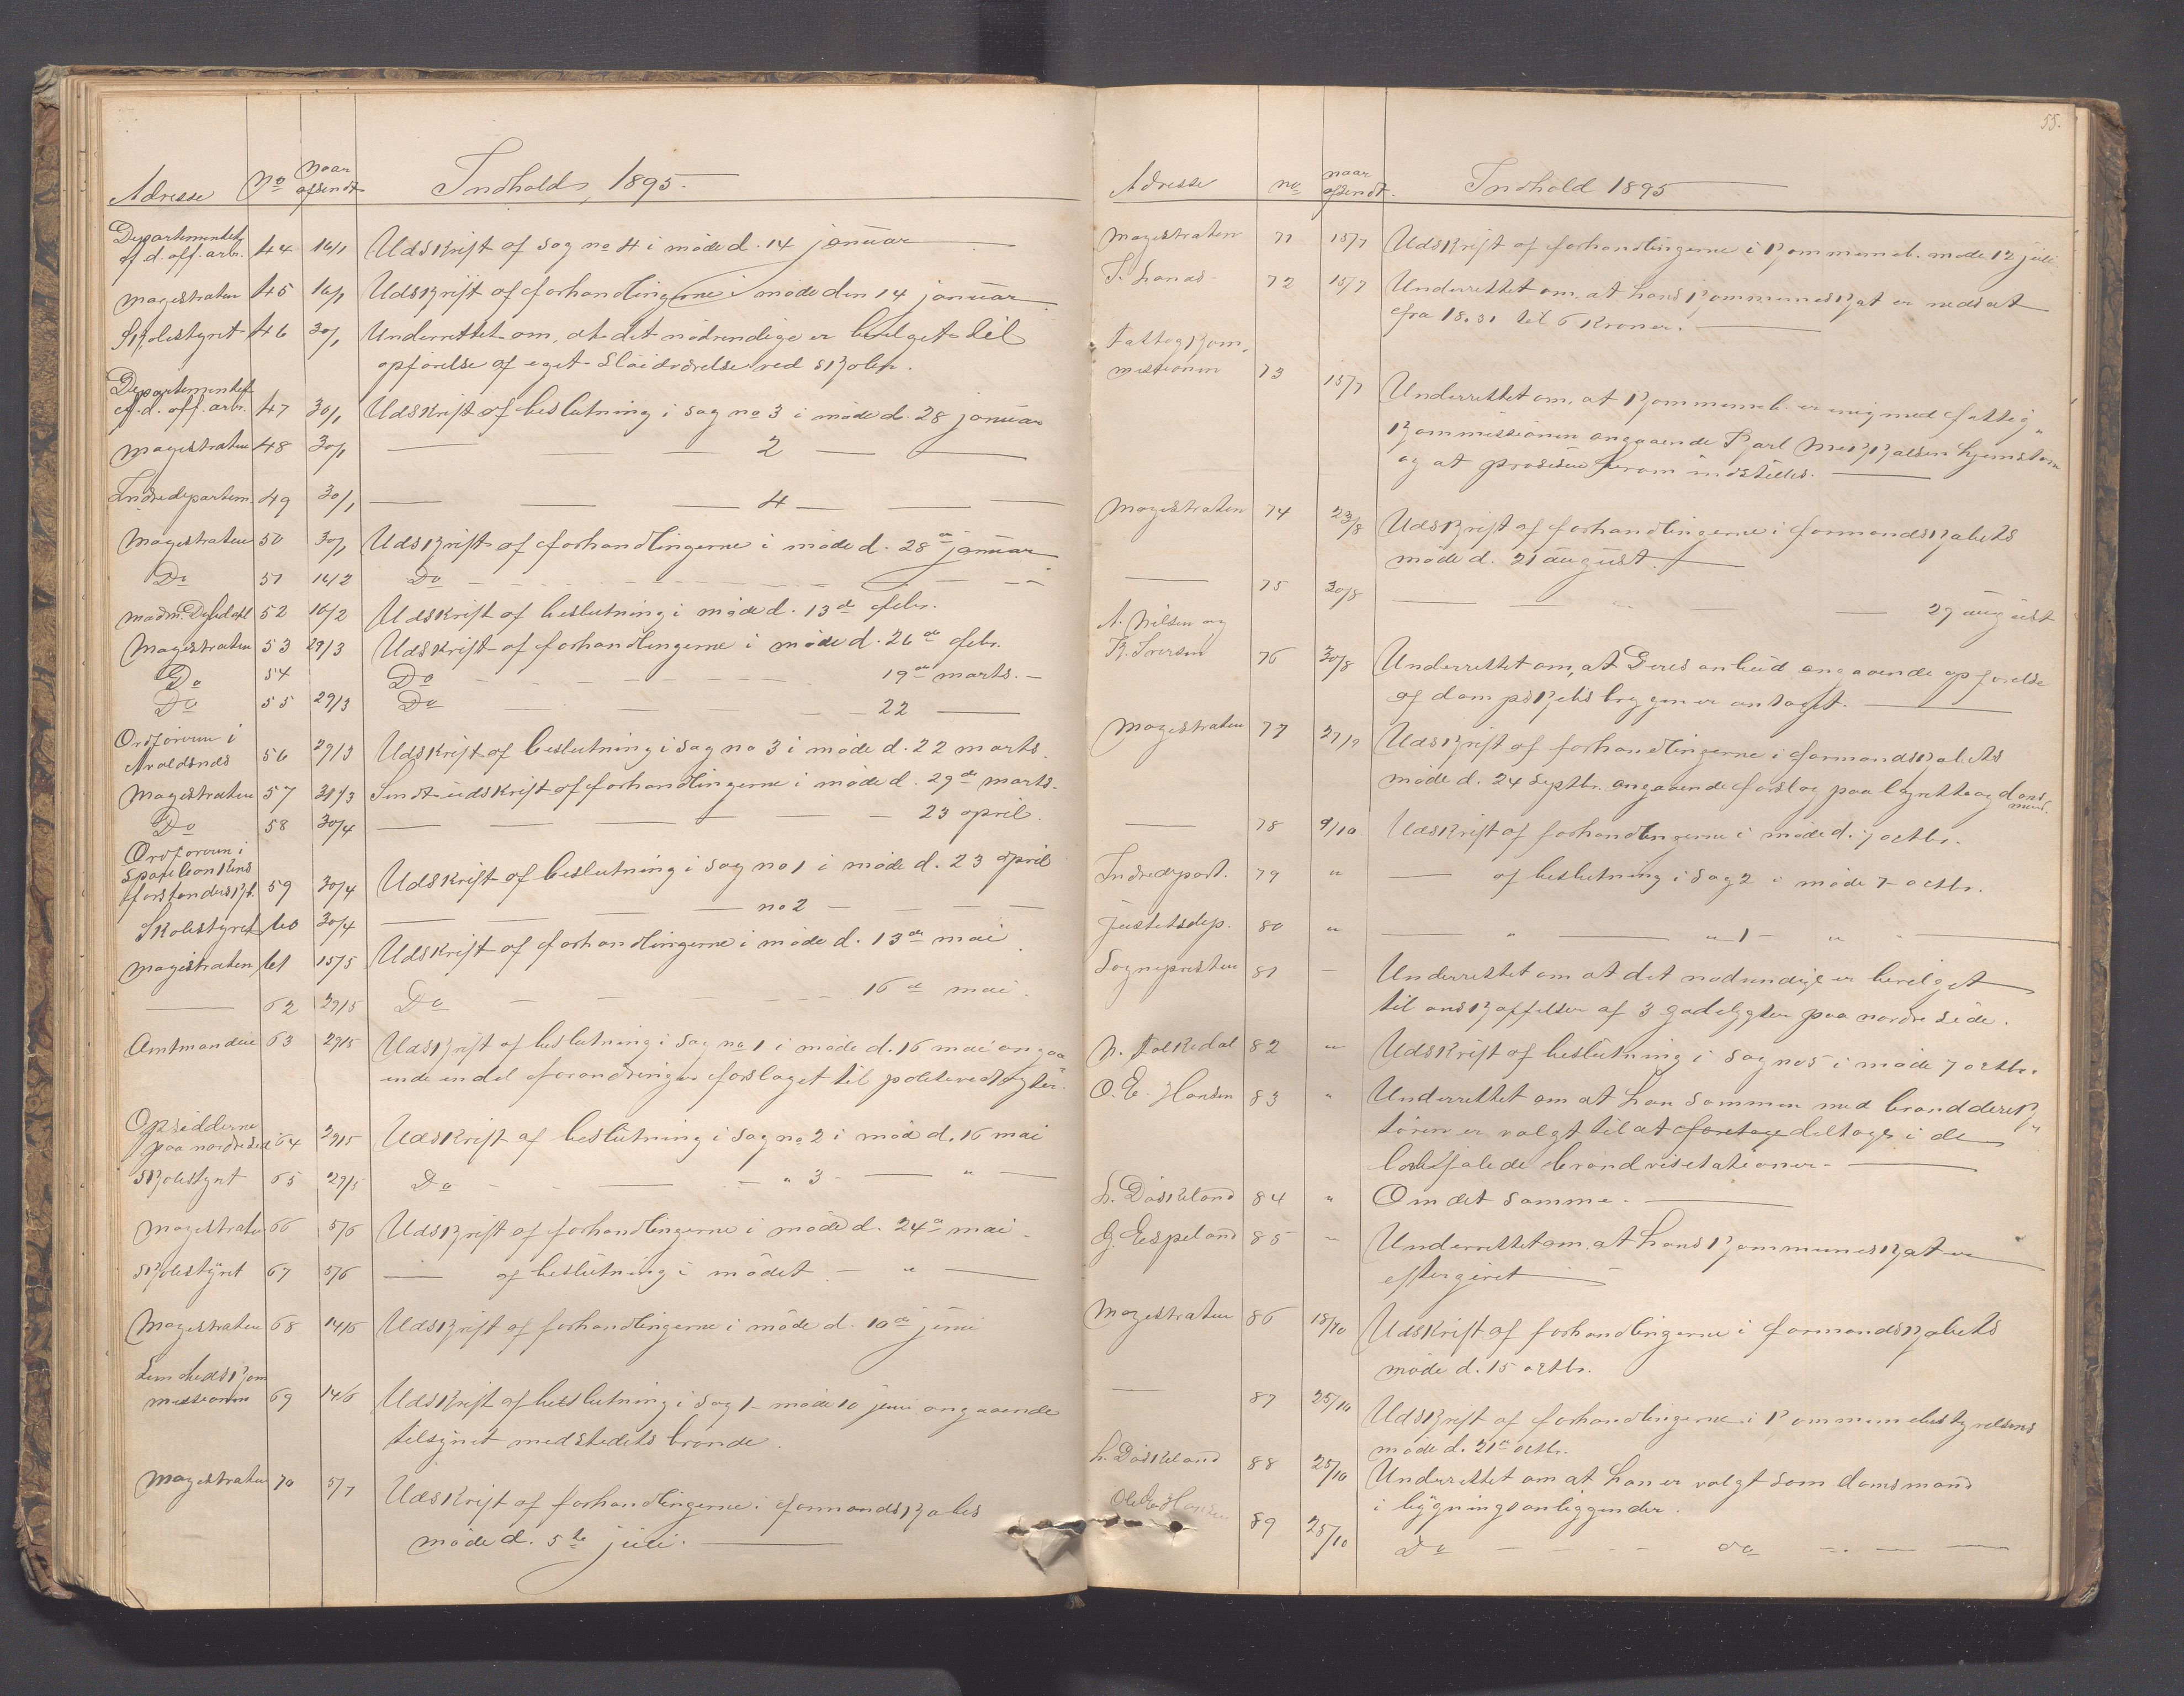 Adresse No Naar afsendt Indhold, 1895.
Departementet
f. d. off. arb. 44 16/1 Udskrift af sag no 4 i møde d. 14 januar
Magistraten 45 16/1 Udskrift af forhandlingerne i møde den 14 januar
Skolestyret 46 30/1 Underrettet om, at det nødvendige er bevilget til
opførelse af eget sløidværelse ved skolen.
Departementet
f. d. off. arb. 47 30/1 Udskrift af beslutning i sag no 3 i møde d. 28 januar
Magistraten 48 30/1 — — 2 — —
Indredepartem. 49 30/1 — — — 4 — — —
Magistraten 50 30/1 Udskrift af forhandlingerne i møde d. 28 januar
Do 51 16/2 Do — — —
Madm. 52 16/2 Udskrift af beslutning i møde d. 13de febr.
Magistraten 53 29/3 Udskrift af forhandlingerne i møde d. 26de febr.
Do 54 Do — — — 19de marts. —
Do 55 29/3 Do — — — 22 —
Ordføreren i
Avaldsnes 56 29/3 Udskrift af beslutning i sag no 3 i møde d. 22 marts
Magistraten 57 30/3 Sendt udskrift af forhandlingerne i møde d. 29de marts.
Do 58 30/4 — — — — — 23 april.
Ordføreren i
forstanderskb. 59 30/4 Udskrift af beslutning i sag no 1 i møde d. 23 april
Skolestyret 60 30/4 — — — — no 2 — — — —
Magistraten 61 15/5 Udskrift af forhandlingerne i møde d. 13de mai
— 62 29/5 Do — — — 16de mai.
Amtmanden 63 29/5 Udskrift af beslutning i sag no 1 i møde d. 16 mai angaa
ende endel forandringer forslaget til politivedtægter.
Opsidderne
paa nordre side 64 29/5 Udskrift af beslutning i sag no 2 i møde d. 16 mai
Skolestyret 65 29/5 Do — — — " 3 — " —
Magistraten 66 5/6 Udskrift af forhandlingerne i møde d. 24de mai.
Skolestyret 67 5/6 — af beslutning i mødet — " —
Magistraten 68 14/6 Udskrift af forhandlingerne i møde d. 10de juni
Sundhedskom
missionen 69 14/6 Udskrift af beslutning i sag 1 — møde 10 juni angaaende
tilsynet med stedets brønde.
Magistraten 70 5/7 Udskrift af forhandlingerne i formandskabes
møde d. 5te juli. —
55.
Adresse no naar afsendt. Indhold 1895
Magistraten 71 15/7 Udskrift af forhandlingerne i kommuneb. møde 12 juli
72 15/7 Underrettet om, at hans kommuneskat er nedsat
fra 18.31 til 6 kroner. —
Fattigkom-
missionen 73 15/7 Underrettet om, at kommuneb. er enig med fattig-
kommissionen angaaende Karl hjemstavn
og at herom indstilles. —
Magistraten 74 23/8 Udskrift af forhandlingerne i formandskabets
møde d. 21 august. —
— 75 30/8 — — — — — 27 august
A. Nilsen og
K. Iversen 76 30/8 Underrettet om, at Deres anbud angaaende opførelse
af dampskibsbryggen er antaget. —
Magistraten 77 27/9 Udskrift af forhandlingerne i formandskabets
møde d. 24 septbr. angaaende forslag paa lagrette og doms
mænd.
— 78 9/10 Udskrift af forhandlingerne i møde d. 7 octbr.
Indredepart. 79 " — af beslutning i sag 2 i møde 7 octbr.
Justitsdep. 80 " — " — " 1 — " —
Sognepresten 81 — Underrettet om at det nødvendige er bevilget
til anskaffelse af 3 gadelygter paa nordre side.
N. Falkedal 82 " Udskrift af beslutning i sag no 5 i møde 7 octbr.
O. E. Hansen 83 " Underrettet om at han sammen med branddirek
tøren er valgt til at foretage deltage i de
lovbefalede brandvisitationer. —
L. Daskeland 84 " Om det samme. —
G. Espeland 85 — Underrettet om, at hans kommuneskat er
eftergivet —
Magistraten 86 18/10 Udskrift af forhandlingerne i formandskabets
møde d. 15 octbr.
— 87 25/10 Udskrift af forhandlingerne i kommunebestyrelsens
møde d. 21de octbr.
L. Daskeland 88 25/10 Underrettet om at han er valgt som domsmand
i bygningsanliggender.
Ole E. Hansen 89 25/10 Do — — — do — — —